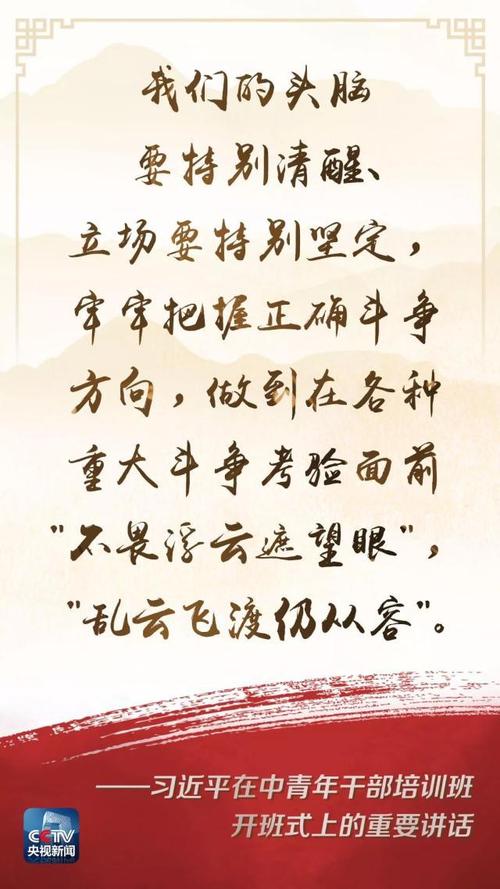 我们的头脑
要特别清醒、
立场要特别坚定，
牢牢把握正确斗争
方向，做到在各种
重大斗争考验面前
"不畏浮云遮望眼"，
"乱云飞渡仍从容"。
——习近平在中青年干部培训班
开班式上的重要讲话
CCTV
央视新闻